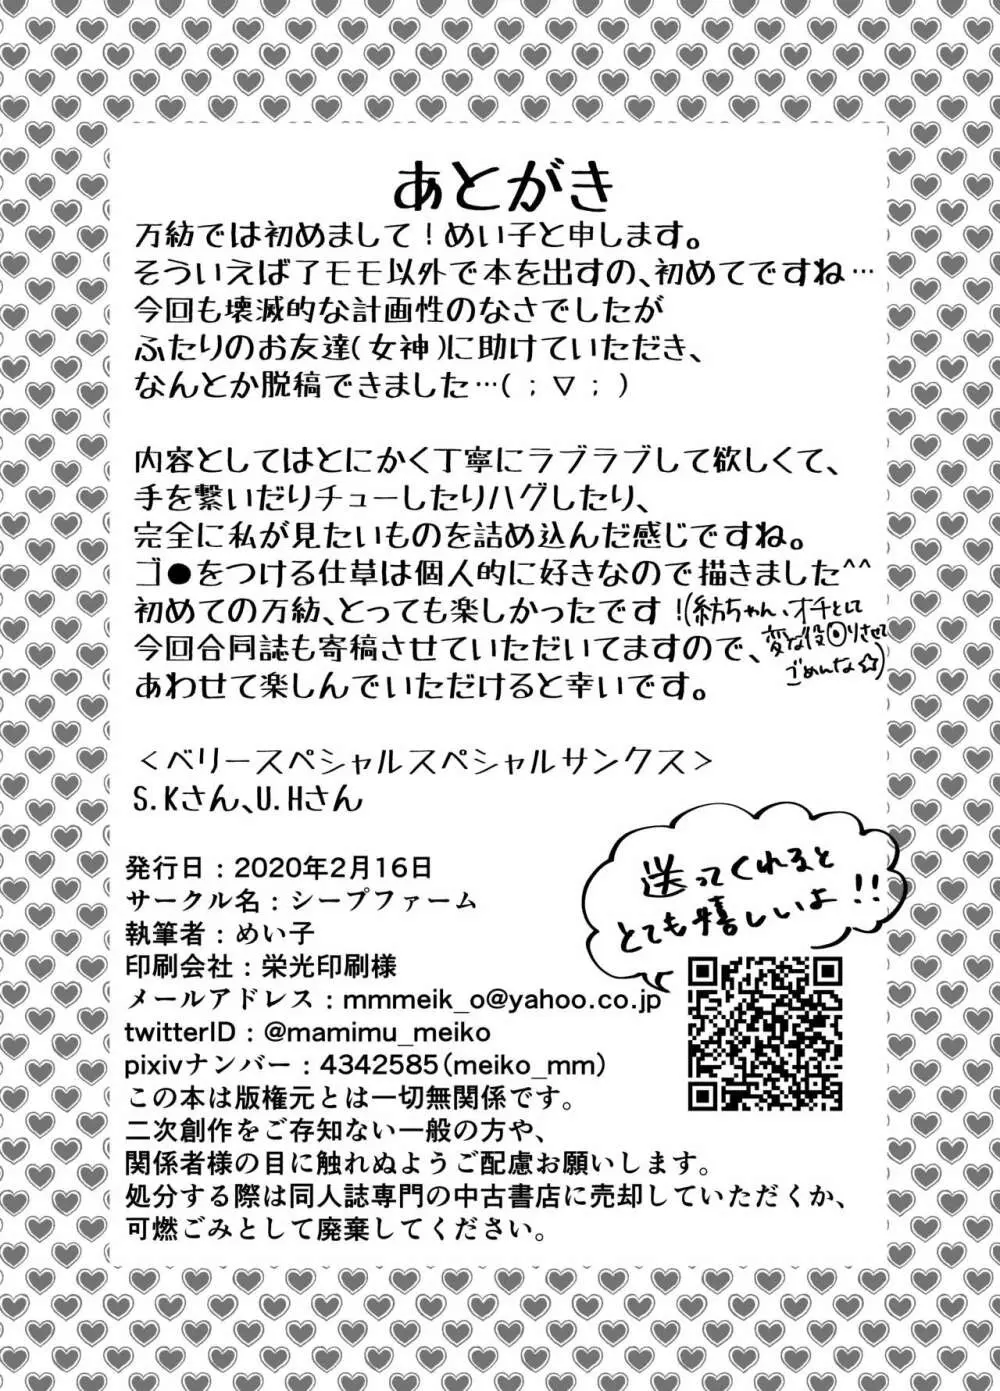 あとがき
万紡では初めまして！めい子と申します。
そういえば了モモ以外で本を出すの、初めてですね…
今回も壊滅的な計画性のなさでしたが
ふたりのお友達(女神)に助けていただき、
なんとか脱稿できました…( ；∇；)
内容としてはとにかく丁寧にラブラブして欲しくて、
手を繋いだりチューしたりハグしたり、
完全に私が見たいものを詰め込んだ感じですね。
ゴ●をつける仕草は個人的に好きなので描きました^^
初めての万紡、とっても楽しかったです！(紡ちゃん、オチとして
変な役回りさせて
ごめんな☆)
今回合同誌も寄稿させていただいてますので、
あわせて楽しんでいただけると幸いです。
＜ベリースペシャルスペシャルサンクス＞
S.Kさん、U.Hさん
送ってくれると
とても嬉しいよ!!
発行日：2020年2月16日
サークル名：シープファーム
執筆者：めい子
印刷会社：栄光印刷様
メールアドレス：mmmeik_o@yahoo.co.jp
twitterID：@mamimu_meiko
pixivナンバー：4342585(meiko_mm)
この本は版権元とは一切無関係です。
二次創作をご存知ない一般の方や、
関係者様の目に触れぬようご配慮お願いします。
処分する際は同人誌専門の中古書店に売却していただくか、
可燃ごみとして廃棄してください。